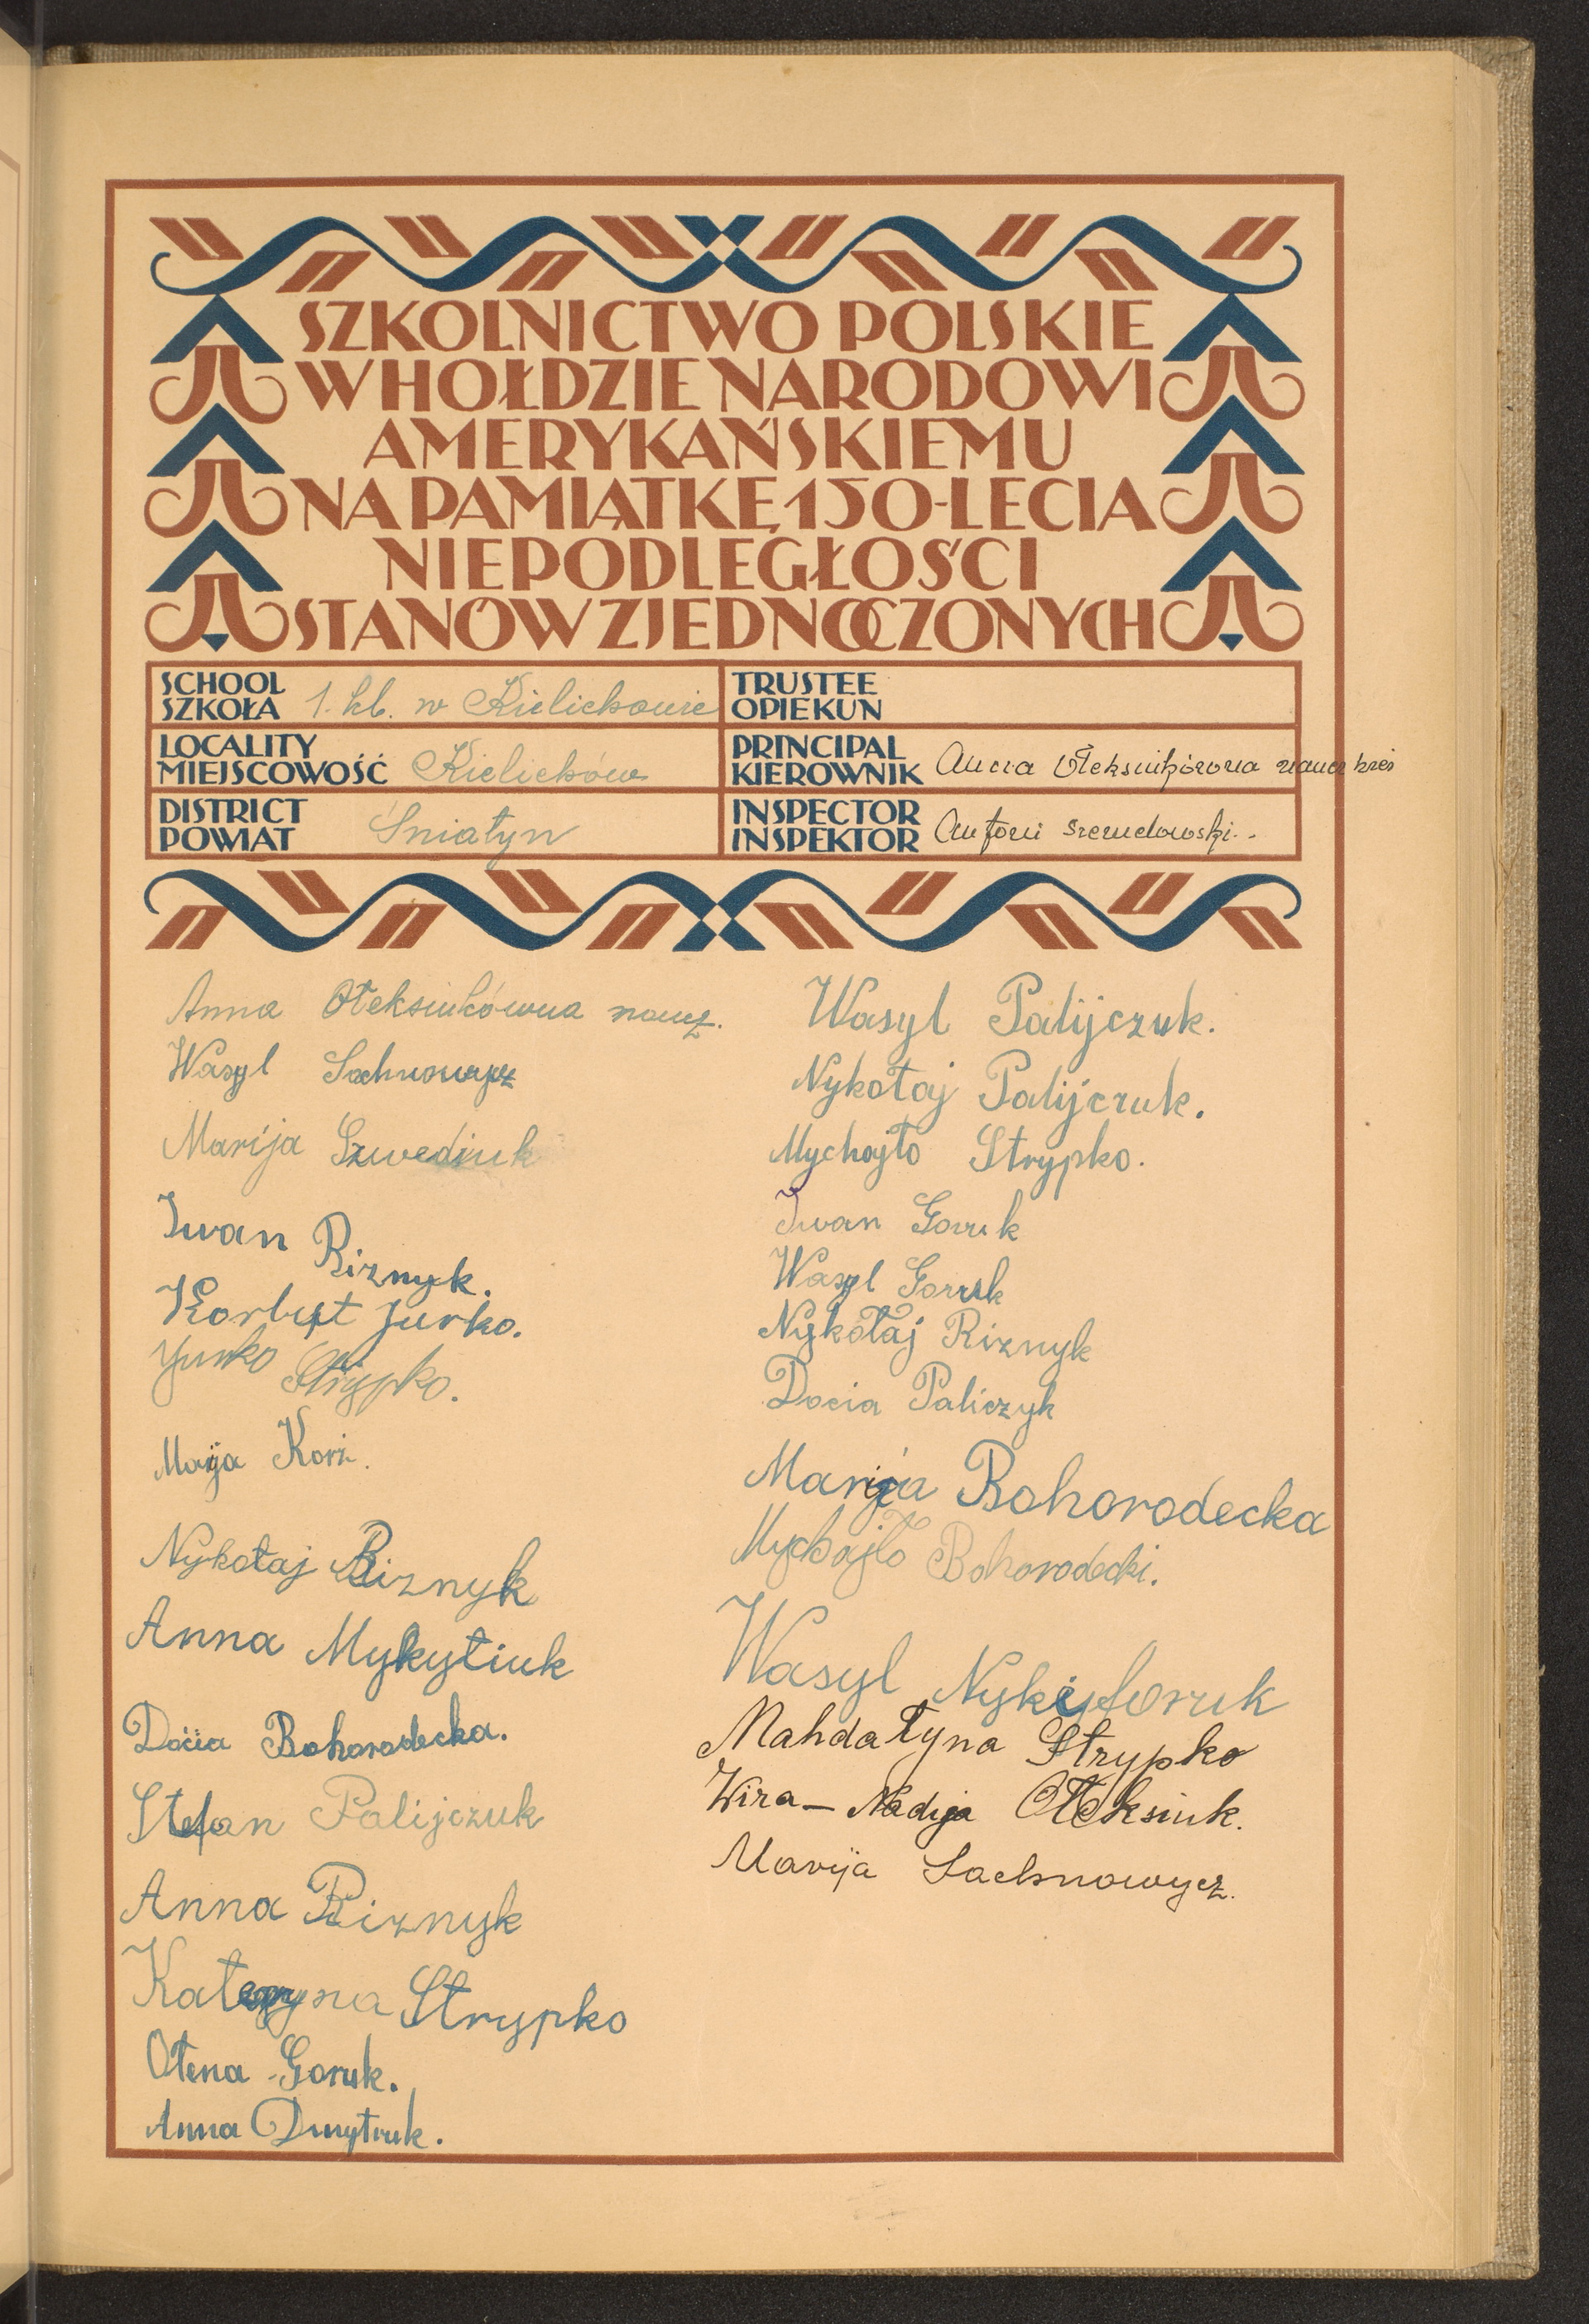 SZKOLNICTWO POLSKIE
W HOŁDZIE NARODOWI
AMERYKAŃSKIEMU
NA PAMIĄTKĘ 150-LECIA
NIEPODLEGŁOŚCI
STANÓW ZJEDNOCZONYCH
SCHOOL
SZKOŁA 1. kl. w Kielichowie
TRUSTEE
OPIEKUN
LOCALITY
MIEJSCOWOŚĆ Kielichów
PRINCIPAL
KIEROWNIK Anna Ołeksiukówna
DISTRICT
POWIAT Śniatyn
INSPECTOR
INSPEKTOR Antoni
Anna Ołeksiukówna naucz.
Wasyl Sachnowycz
Marija Szwediuk
Iwan Riznyk.
Korbut Jurko.
Jurko Strypko.
Marija Korż.
Nykołaj Riznyk
Anna Mykytiuk
Docia Bohorodecka.
Stefan Palijczuk
Anna Riznyk
Kateryna Strypko
Ołena Goruk.
Anna Dmytruk.
Wasyl Palijczuk.
Nykołaj Palijczuk.
Mychajło Strypko.
Iwan Goruk
Wasyl Goruk
Nykołaj Riznyk
Docia Paliczyk
Marija Bohorodecka
Mychajło Bohorodecki.
Wasyl Nykyforuk
Mahdałyna Strypko
Wira - Nadija Ołeksiuk.
Marija Sachnowycz.